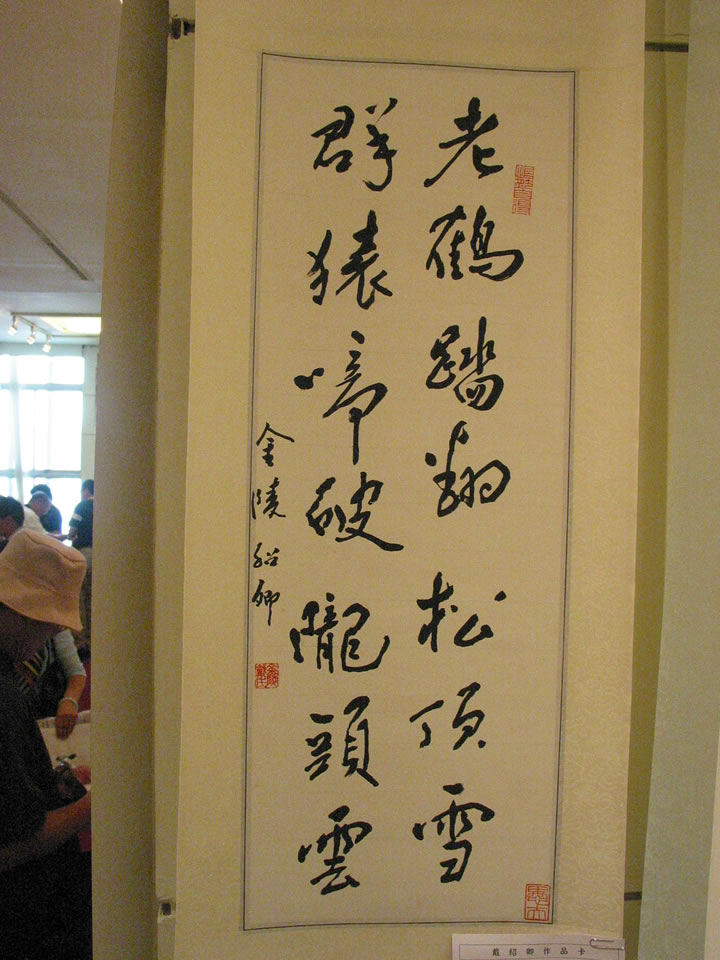 老鶴踏翻松頂雪
群猿啼破隴頭雲
金陵紹卿
戴紹卿作品卡